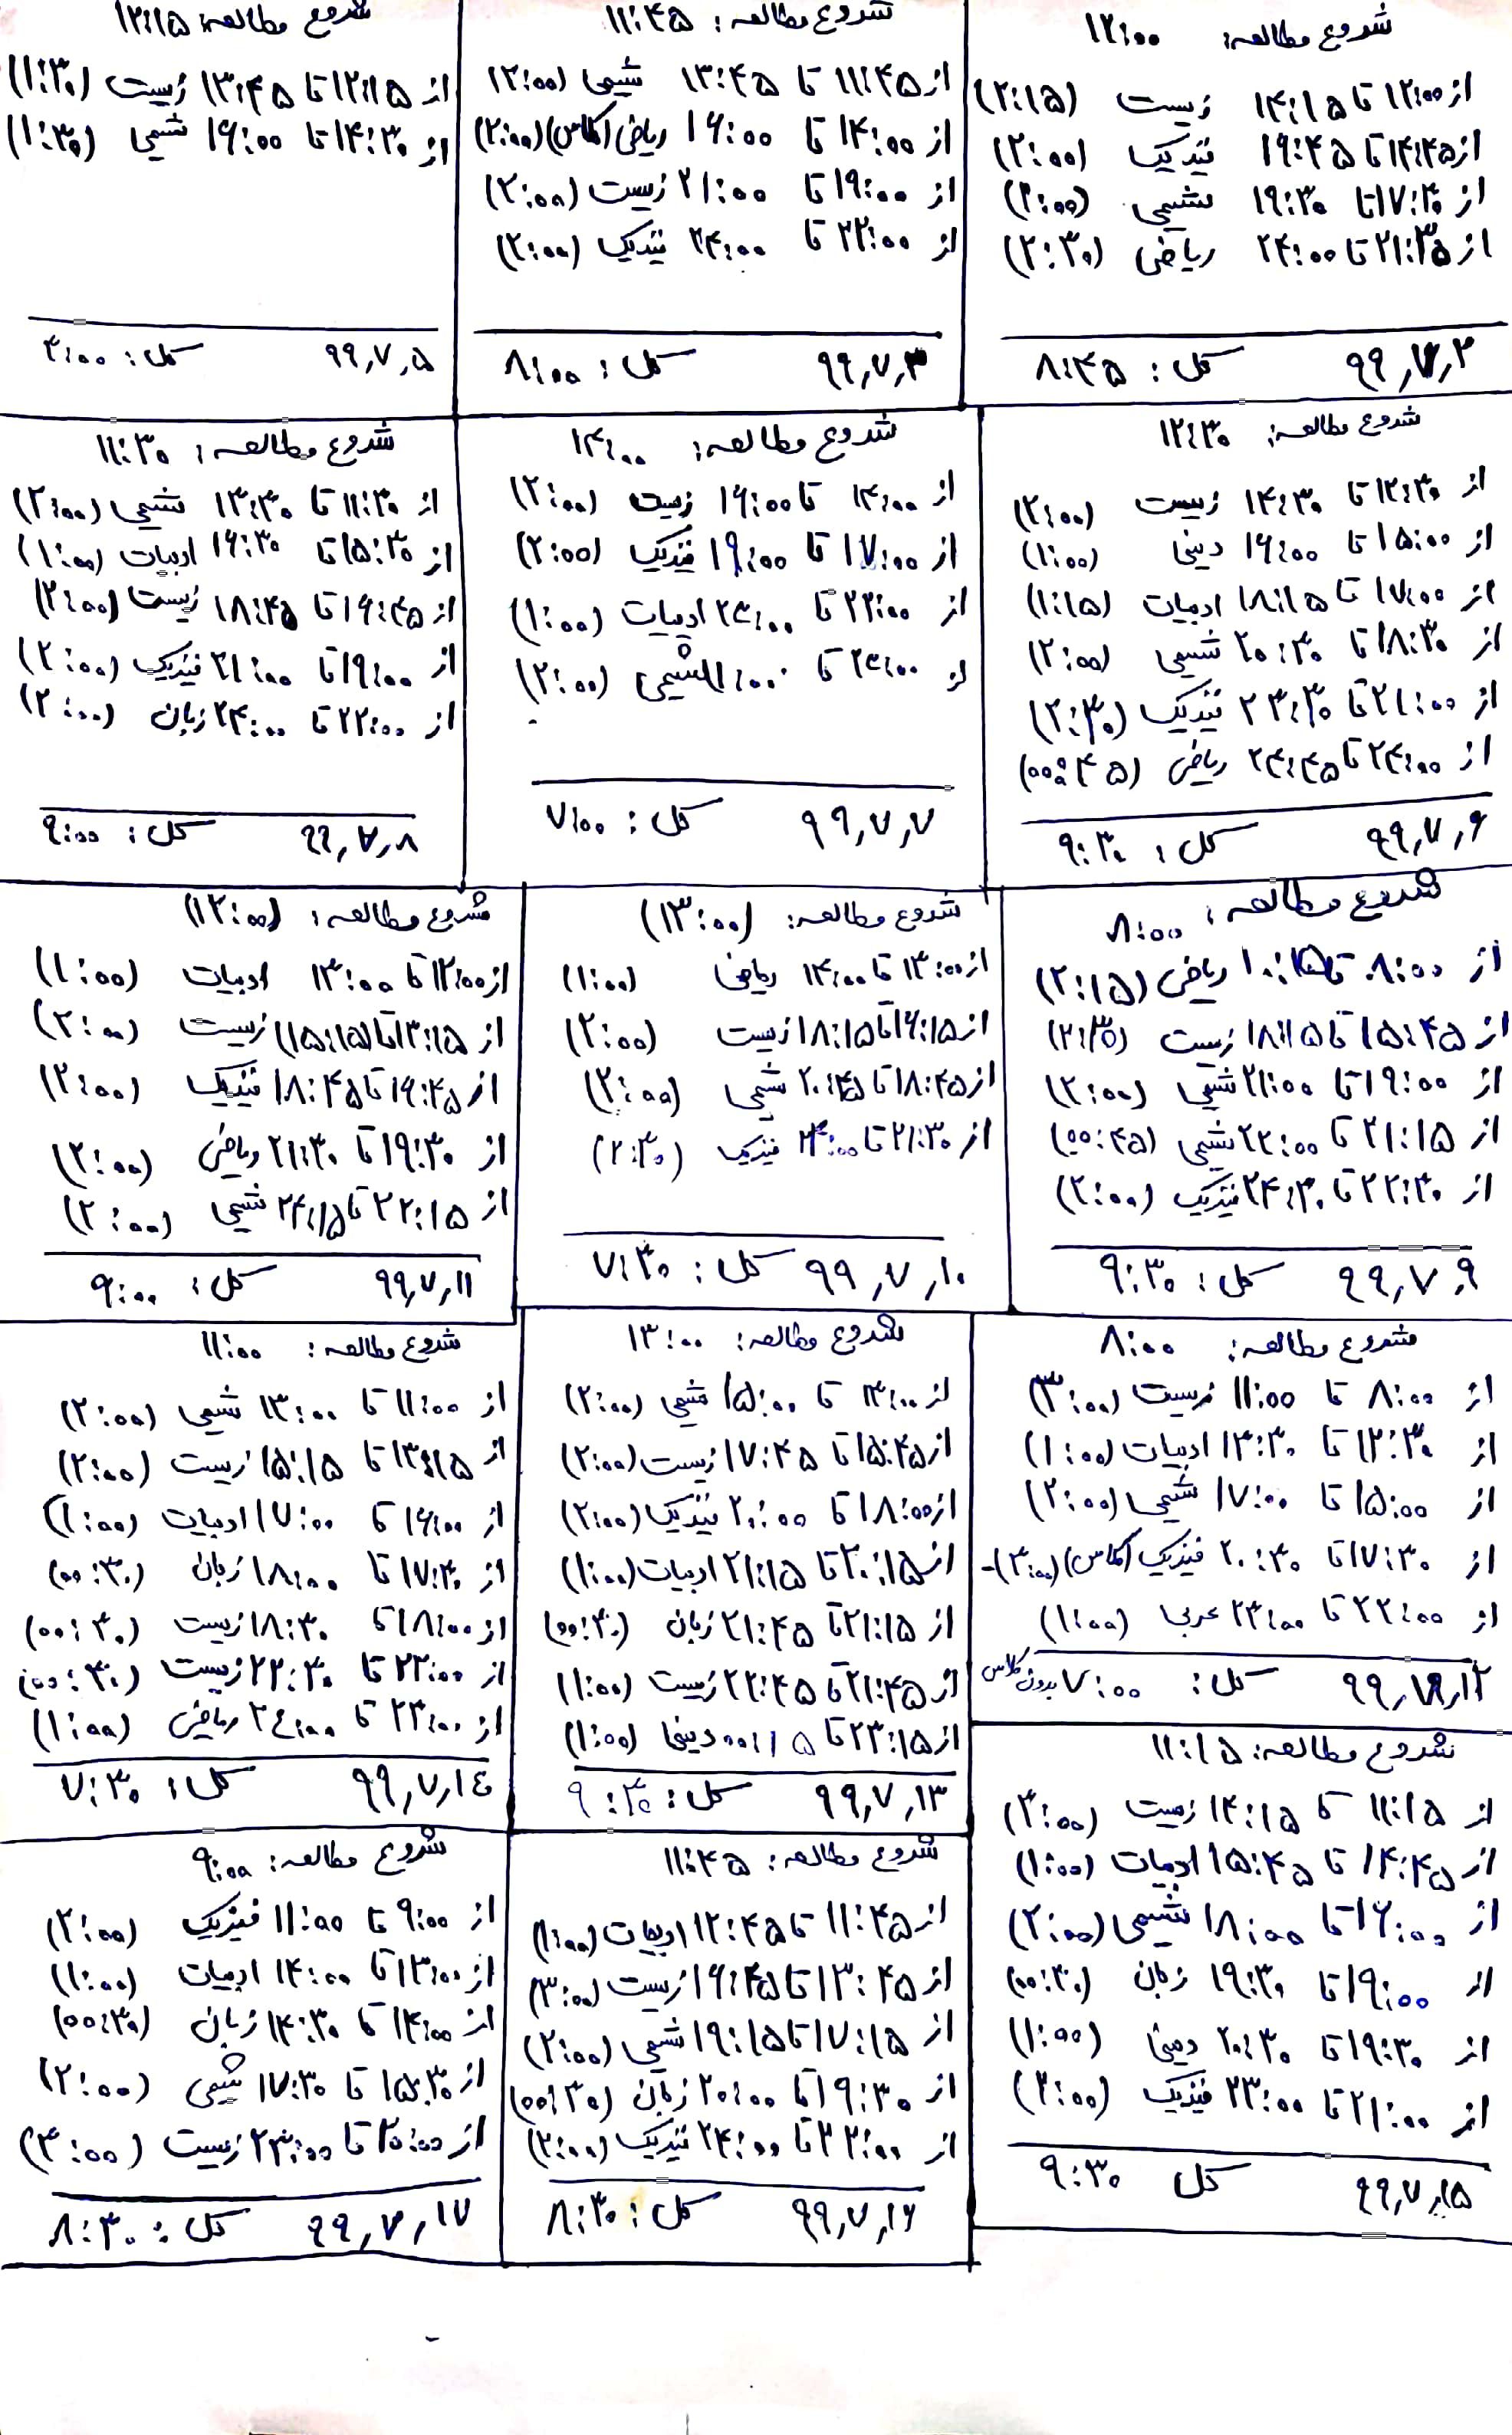 شروع مطالعه: ۱۲:۰۰
از ۱۲:۰۰ تا ۱۴:۱۵ زیست (۲:۱۵)
از ۱۴:۴۵ تا ۱۶:۴۵ فیزیک (۲:۰۰)
از ۱۷:۳۰ تا ۱۹:۳۰ شیمی (۲:۰۰)
از ۲۱:۳۵ تا ۲۴:۰۰ ریاضی (۲:۳۰)
۹۹,۷,۲ کل: ۸:۴۵
شروع مطالعه: ۱۱:۴۵
از ۱۱:۴۵ تا ۱۳:۴۵ شیمی (۲:۰۰)
از ۱۴:۰۰ تا ۱۶:۰۰ ریاضی (کلاس) (۲:۰۰)
از ۱۹:۰۰ تا ۲۱:۰۰ زیست (۲:۰۰)
از ۲۲:۰۰ تا ۲۴:۰۰ فیزیک (۲:۰۰)
۹۹,۷,۳ کل: ۸:۰۰
شروع مطالعه: ۱۲:۱۵
از ۱۲:۱۵ تا ۱۳:۴۵ زیست (۱:۳۰)
از ۱۴:۳۰ تا ۱۶:۰۰ شیمی (۱:۳۰)
۹۹,۷,۵ کل: ۳:۰۰
شروع مطالعه: ۱۲:۳۰
از ۱۲:۳۰ تا ۱۴:۳۰ زیست (۲:۰۰)
از ۱۵:۰۰ تا ۱۶:۰۰ دینی (۱:۰۰)
از ۱۷:۰۰ تا ۱۸:۱۵ ادبیات (۱:۱۵)
از ۱۸:۳۰ تا ۲۰:۳۰ شیمی (۲:۰۰)
از ۲۱:۰۰ تا ۲۳:۳۰ فیزیک (۲:۳۰)
از ۲۴:۰۰ تا ۲۴:۴۵ ریاضی (۰۰:۴۵)
۹۹,۷,۶ کل: ۹:۳۰
شروع مطالعه: ۱۴:۰۰
از ۱۴:۰۰ تا ۱۶:۰۰ زیست (۲:۰۰)
از ۱۷:۰۰ تا ۱۹:۰۰ فیزیک (۲:۰۰)
از ۲۲:۰۰ تا ۲۳:۰۰ ادبیات (۱:۰۰)
از ۲۳:۰۰ تا ۱:۰۰ شیمی (۲:۰۰)
۹۹,۷,۷ کل: ۷:۰۰
شروع مطالعه: ۱۱:۳۰
از ۱۱:۳۰ تا ۱۳:۳۰ شیمی (۲:۰۰)
از ۱۵:۳۰ تا ۱۶:۳۰ ادبیات (۱:۰۰)
از ۱۶:۴۵ تا ۱۸:۴۵ زیست (۲:۰۰)
از ۱۹:۰۰ تا ۲۱:۰۰ فیزیک (۲:۰۰)
از ۲۲:۰۰ تا ۲۴:۰۰ زبان (۲:۰۰)
۹۹,۷,۸ کل: ۹:۰۰
شروع مطالعه: ۸:۰۰
از ۸:۰۰ تا ۱۰:۱۵ ریاضی (۲:۱۵)
از ۱۵:۴۵ تا ۱۸:۱۵ زیست (۲:۳۰)
از ۱۹:۰۰ تا ۲۱:۰۰ شیمی (۲:۰۰)
از ۲۱:۱۵ تا ۲۲:۰۰ شیمی (۰۰:۴۵)
از ۲۲:۳۰ تا ۲۴:۳۰ فیزیک (۲:۰۰)
۹۹,۷,۹ کل: ۹:۳۰
شروع مطالعه: (۱۳:۰۰)
از ۱۳:۰۰ تا ۱۴:۰۰ ریاضی (۱:۰۰)
از ۱۶:۱۵ تا ۱۸:۱۵ زیست (۲:۰۰)
از ۱۸:۴۵ تا ۲۰:۴۵ شیمی (۲:۰۰)
از ۲۱:۳۰ تا ۲۴:۰۰ فیزیک (۲:۳۰)
۹۹,۷,۱۰ کل: ۷:۳۰
شروع مطالعه: (۱۲:۰۰)
از ۱۲:۰۰ تا ۱۳:۰۰ ادبیات (۱:۰۰)
از ۱۳:۱۵ تا (۱۵:۱۵) زیست (۲:۰۰)
از ۱۶:۴۵ تا ۱۸:۴۵ فیزیک (۲:۰۰)
از ۱۹:۳۰ تا ۲۱:۳۰ ریاضی (۲:۰۰)
از ۲۲:۱۵ تا ۲۴:۱۵ شیمی (۲:۰۰)
۹۹,۷,۱۱ کل: ۹:۰۰
شروع مطالعه: ۸:۰۰
از ۸:۰۰ تا ۱۱:۰۰ زیست (۳:۰۰)
از ۱۲:۳۰ تا ۱۳:۳۰ ادبیات (۱:۰۰)
از ۱۵:۰۰ تا ۱۷:۰۰ شیمی (۲:۰۰)
از ۱۷:۳۰ تا ۲۰:۳۰ فیزیک (کلاس) (۳:۰۰)-
از ۲۲:۰۰ تا ۲۳:۰۰ عربی (۱:۰۰)
۹۹,۷,۱۲ کل: ۷:۰۰ بدون کلاس
شروع مطالعه: ۱۳:۰۰
از ۱۳:۰۰ تا ۱۵:۰۰ شیمی (۲:۰۰)
از ۱۵:۴۵ تا ۱۷:۴۵ زیست (۲:۰۰)
از ۱۸:۰۰ تا ۲۰:۰۰ فیزیک (۲:۰۰)
از ۲۰:۱۵ تا ۲۱:۱۵ ادبیات (۱:۰۰)
از ۲۱:۱۵ تا ۲۱:۴۵ زبان (۰۰:۳۰)
از ۲۱:۴۵ تا ۲۲:۴۵ زیست (۱:۰۰)
از ۲۳:۱۵ تا ۰۰:۱۵ دینی (۱:۰۰)
۹۹,۷,۱۳ کل: ۹:۳۰
شروع مطالعه: ۱۱:۰۰
از ۱۱:۰۰ تا ۱۳:۰۰ شیمی (۲:۰۰)
از ۱۳:۱۵ تا ۱۵:۱۵ زیست (۲:۰۰)
از ۱۶:۰۰ تا ۱۷:۰۰ ادبیات (۱:۰۰)
از ۱۷:۳۰ تا ۱۸:۰۰ زبان (۰۰:۳۰)
از ۱۸:۰۰ تا ۱۸:۳۰ زیست (۰۰:۳۰)
از ۲۲:۰۰ تا ۲۲:۳۰ زیست (۰۰:۳۰)
از ۲۳:۰۰ تا ۲٤:۰۰ ریاضی (۱:۰۰)
۹۹,۷,۱٤ کل: ۷:۳۰
شروع مطالعه: ۱۱:۱۵
از ۱۱:۱۵ تا ۱۴:۱۵ زیست (۳:۰۰)
از ۱۴:۴۵ تا ۱۵:۴۵ ادبیات (۱:۰۰)
از ۱۶:۰۰ تا ۱۸:۰۰ شیمی (۲:۰۰)
از ۱۹:۰۰ تا ۱۹:۳۰ زبان (۰۰:۳۰)
از ۱۹:۳۰ تا ۲۰:۳۰ دینی (۱:۰۰)
از ۲۱:۰۰ تا ۲۳:۰۰ فیزیک (۲:۰۰)
۹۹,۷,۱۵ کل ۹:۳۰
شروع مطالعه: ۱۱:۴۵
از ۱۱:۴۵ تا ۱۲:۴۵ ادبیات (۱:۰۰)
از ۱۳:۴۵ تا ۱۶:۴۵ زیست (۳:۰۰)
از ۱۷:۱۵ تا ۱۹:۱۵ شیمی (۲:۰۰)
از ۱۹:۳۰ تا ۲۰:۰۰ زبان (۰۰:۳۰)
از ۲۲:۰۰ تا ۲۴:۰۰ فیزیک (۲:۰۰)
۹۹,۷,۱۶ کل: ۸:۳۰
شروع مطالعه: ۹:۰۰
از ۹:۰۰ تا ۱۱:۰۰ فیزیک (۲:۰۰)
از ۱۳:۰۰ تا ۱۴:۰۰ ادبیات (۱:۰۰)
از ۱۴:۰۰ تا ۱۴:۳۰ زبان (۰۰:۳۰)
از ۱۵:۳۰ تا ۱۷:۳۰ شیمی (۲:۰۰)
از ۲۰:۰۰ تا ۲۳:۰۰ زیست (۳:۰۰)
۹۹,۷,۱۷ کل: ۸:۳۰